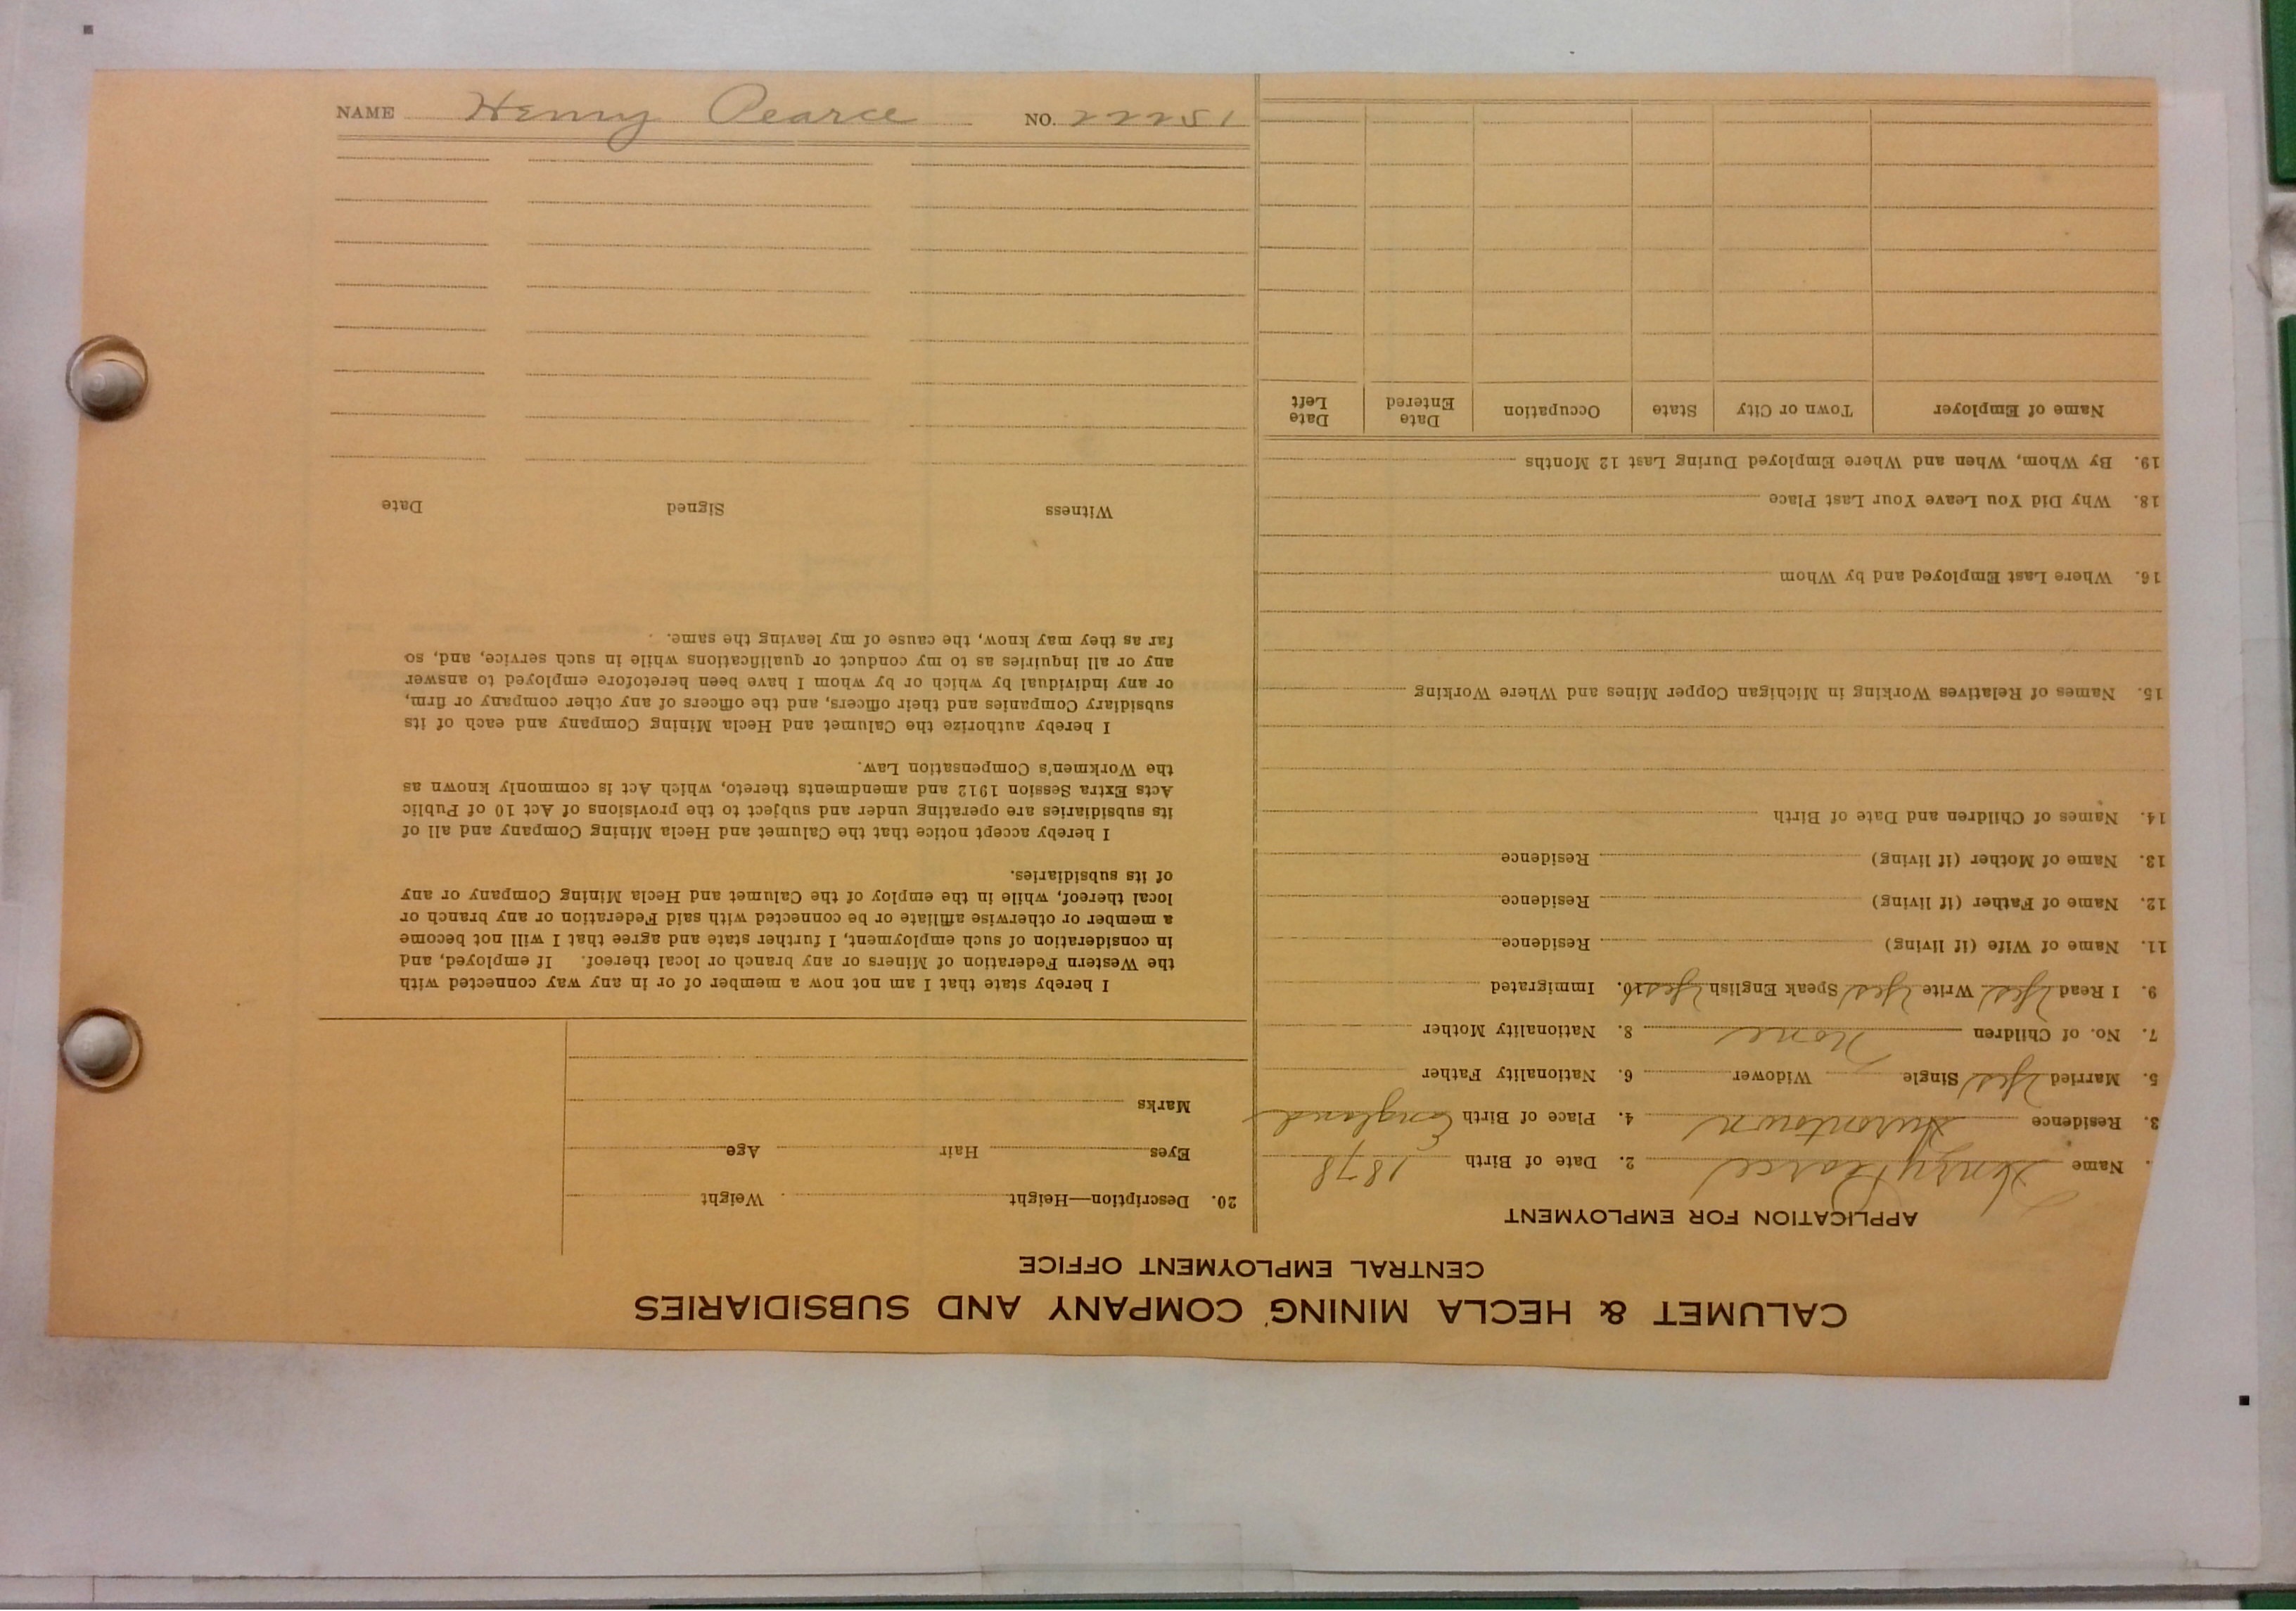 CALUMET & HECLA MINING COMPANY AND SUBSIDIARIES
CENTRAL EMPLOYMENT OFFICE
APPLICATION FOR EMPLOYMENT
. Name Henry Pearce 2. Date of Birth 1878
3. Residence Hurontown 4. Place of Birth England
5. Married Yes Single Widower 6. Nationality Father
7. No. of Children None 8. Nationality Mother
9. I Read Yes Write Yes Speak English Yes 10. Immigrated
11. Name of Wife (if living) Residence
12. Name of Father (if living) Residence
13. Name of Mother (if living) Residence
14. Names of Children and Date of Birth
15. Names of Relatives Working in Michigan Copper Mines and Where Working
16. Where Last Employed and by Whom
18. Why Did You Leave Your Last Place
19. By Whom, When and Where Employed During Last 12 Months
Name of Employer Town or City State Occupation Date Entered Date Left
20. Description—Height Weight
Eyes Hair Age
Marks
I hereby state that I am not now a member of or in any way connected with
the Western Federation of Miners or any branch or local thereof. If employed, and
in consideration of such employment, I further state and agree that I will not become
a member or otherwise affiliate or be connected with said Federation or any branch or
local thereof, while in the employ of the Calumet and Hecla Mining Company or any
of its subsidiaries.
I hereby accept notice that the Calumet and Hecla Mining Company and all of
its subsidiaries are operating under and subject to the provisions of Act 10 of Public
Acts Extra Session 1912 and amendments thereto, which Act is commonly known as
the Workmen's Compensation Law.
I hereby authorize the Calumet and Hecla Mining Company and each of its
subsidiary Companies and their officers, and the officers of any other company or firm,
or any individual by which or by whom I have been heretofore employed to answer
any or all inquiries as to my conduct or qualifications while in such service, and, so
far as they may know, the cause of my leaving the same.
Witness Signed Date
NAME Henry Pearce NO. 22251